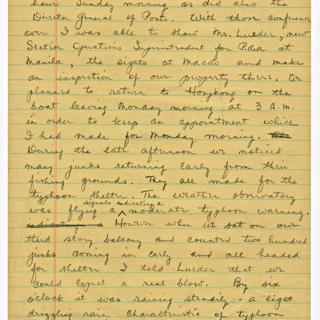 hour Sunday morning as did also the
Director General of Posts. With those conferences
over I was able to show Mr. Lueder, new
Section Operations Superintendent for P.a.a at
Manila, the sights at Macao and make
an inspection of our property there. We
planned to return to Hongkong on the
boat leaving Monday morning at 3 A.M.
in order to keep an appointment which
I had made for Monday morning.
During the late afternoon we noticed
many junks returning early from their
fishing grounds. They all made for the
typhoon shelter. The weather observatory
was flying signals indicating a moderate typhoon warning.
However when we sat on our
third story balcony and counted two hundred
junks coming in early and all headed
for shelter I told Lueder that we
could expect a real blow. By six
o'clock it was raining steadily - a light
drizzling rain characteristic of typhoon